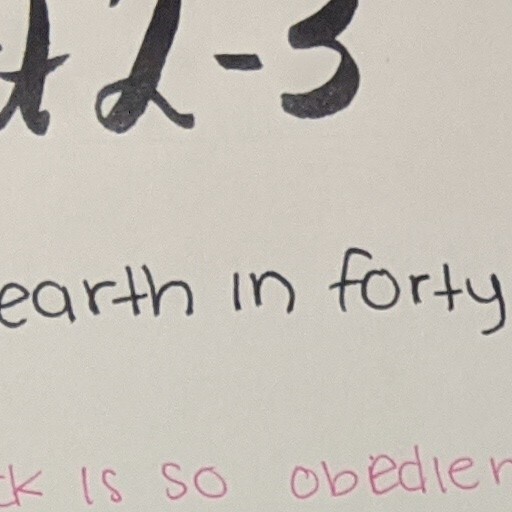 t 2-3
earth in forty
ck is so obedien